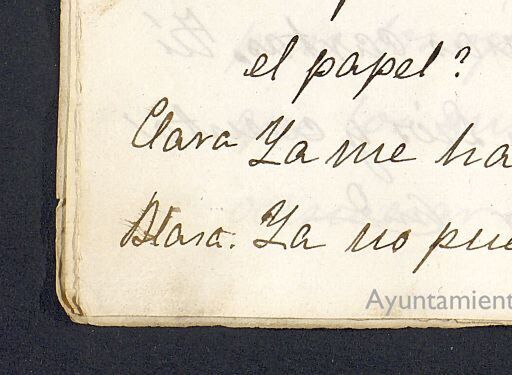 el papel?
Clara Ya me ha
Blasa. Ya no pue
Ayuntamient